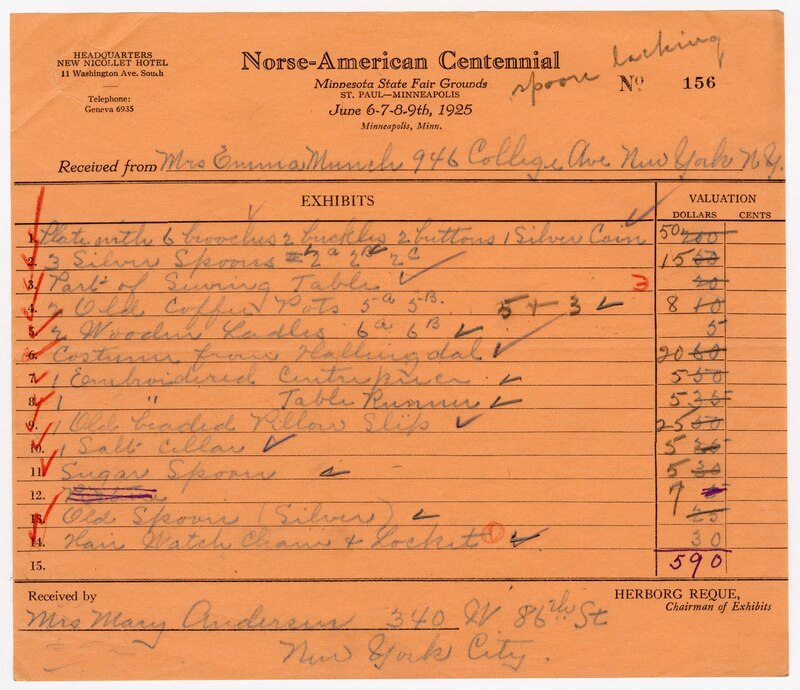 HEADQUARTERS
NEW NICOLLET HOTEL
11 Washington Ave. South
Telephone:
Geneva 6935
Norse-American Centennial
Minnesota State Fair Grounds
ST. PAUL—MINNEAPOLIS
June 6-7-8-9th, 1925
Minneapolis, Minn.
spoon lacking
No 156
Received from Mrs Emma Munch 946 College Ave New York N.Y.
EXHIBITS
VALUATION
DOLLARS CENTS
1. Plate with 6 brooches 2 buckles 2 buttons 1 Silver Coin 50 200
2. 3 Silver Spoons 2A 2B 2C 15 60
3. Part of Sewing Table 3 20
4. 2 Old Coffee Pots 5A 5B. 5 + 3 8 10
5. 2 Wooden Ladles 6A 6B 5
6. Costume from Hallingdal 20 60
7. 1 Embroidered Centrepiece 5 50
8. 1 " Table Runner 5 35
9. 1 Old beaded Pillow Slip 25 60
10. 1 Salt Cellar 5
11. Sugar Spoon 5 30
12. 7
13. Old Spoon (Silver) 25
14. Hair Watch Chain & Locket 1 30
15. 590
Received by
Mrs Mary Anderson 340 W 86th St
New York City.
HERBORG REQUE,
Chairman of Exhibits